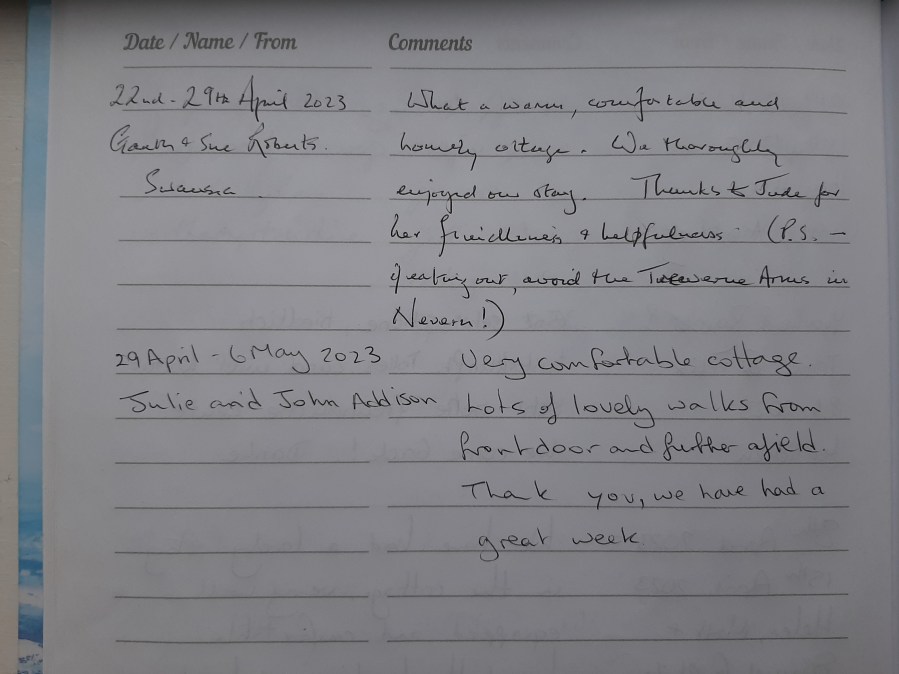 Date / Name / From Comments
22nd - 29th April 2023 What a warm, comfortable and
Gareth & Sue Roberts. homely cottage. We thoroughly
Swansea enjoyed our stay. Thanks to Jude for
her friendliness & helpfulness. (P.S. -
if eating out, avoid the Trewerne Arms in
Nevern!)
29 April - 6 May 2023 Very comfortable cottage.
Julie and John Addison Lots of lovely walks from
front door and further afield.
Thank you, we have had a
great week